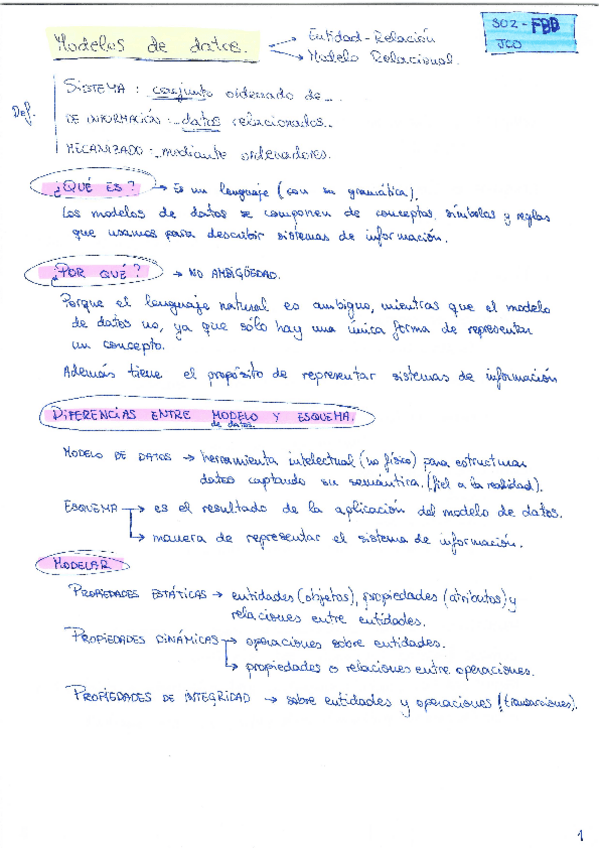 Modelos de datos.
→ Entidad-Relación
→ Modelo Relacional.
SO2 - FBD
JCO
Def.
SISTEMA: conjunto ordenado de...
DE INFORMACIÓN: datos relacionados..
MECANIZADO: mediante ordenadores.
¿QUÉ ES? → Es un lenguaje (con su gramática).
Los modelos de datos se componen de conceptos, símbolos y reglas
que usamos para describir sistemas de información.
¿POR QUÉ? → NO AMBIGÜEDAD.
Porque el lenguaje natural es ambiguo, mientras que el modelo
de datos no, ya que sólo hay una única forma de representar
un concepto.
Además tiene el propósito de representar sistemas de información
DIFERENCIAS ENTRE MODELO Y ESQUEMA.
de datos
MODELO DE DATOS → herramienta intelectual (no físico) para estructurar
datos captando su semántica. (fiel a la realidad).
ESQUEMA → es el resultado de la aplicación del modelo de datos.
→ manera de representar el sistema de información.
MODELAR
PROPIEDADES ESTÁTICAS → entidades (objetos), propiedades (atributos) y
relaciones entre entidades.
PROPIEDADES DINÁMICAS → operaciones sobre entidades.
→ propiedades o relaciones entre operaciones.
PROPIEDADES DE INTEGRIDAD → sobre entidades y operaciones (transacciones).
1